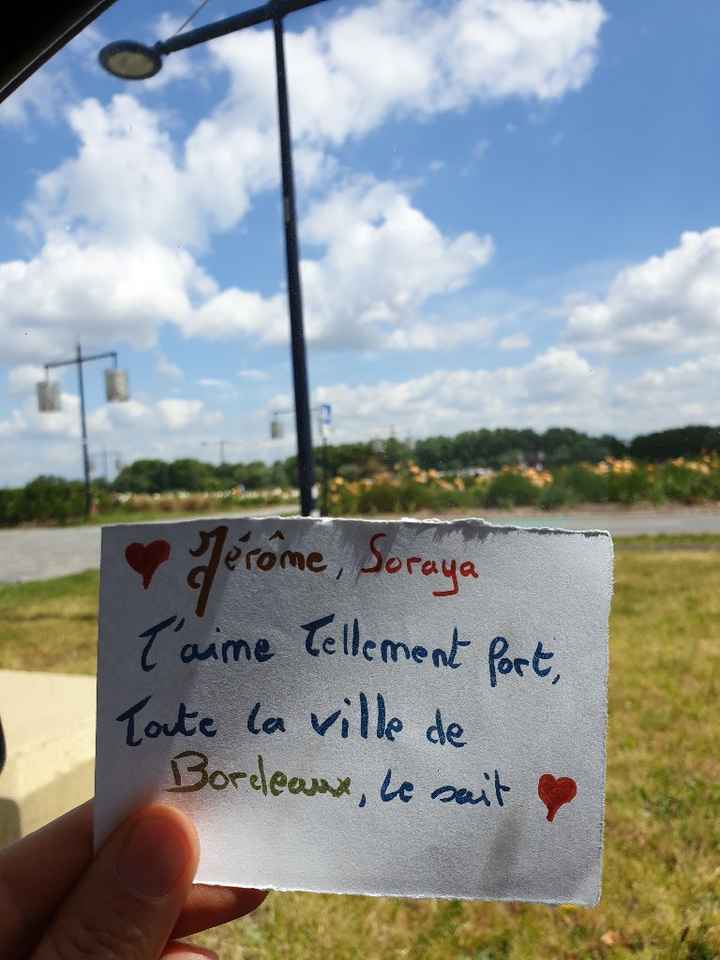 Jérôme, Soraya
T'aime Tellement fort,
Toute la ville de
Bordeaux, le sait